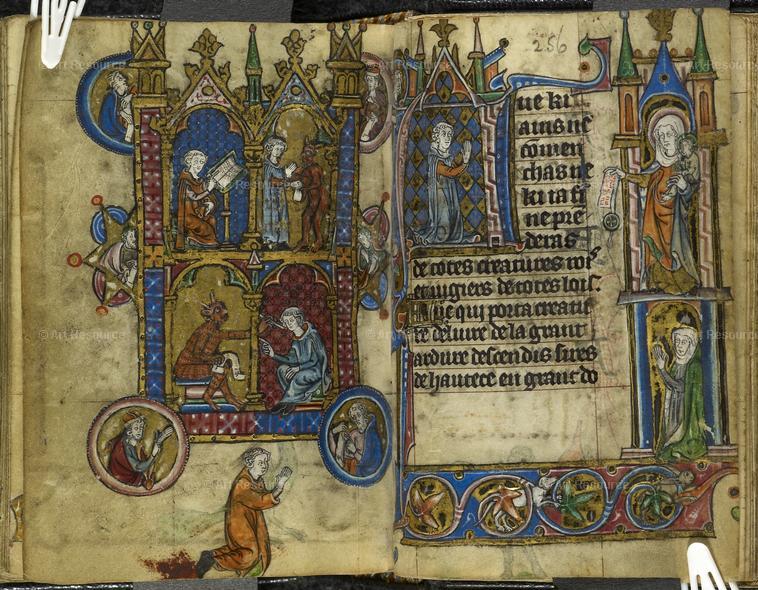 256
ue ki
ains ne
comen
chas ne
ki ia fi
ne pre
deras
de totes creatures rois
et iugiers de totes lois.
ue qui porta creatu
re de la grant
ardure descendis sires
de hautece en grant do
© Art Resource